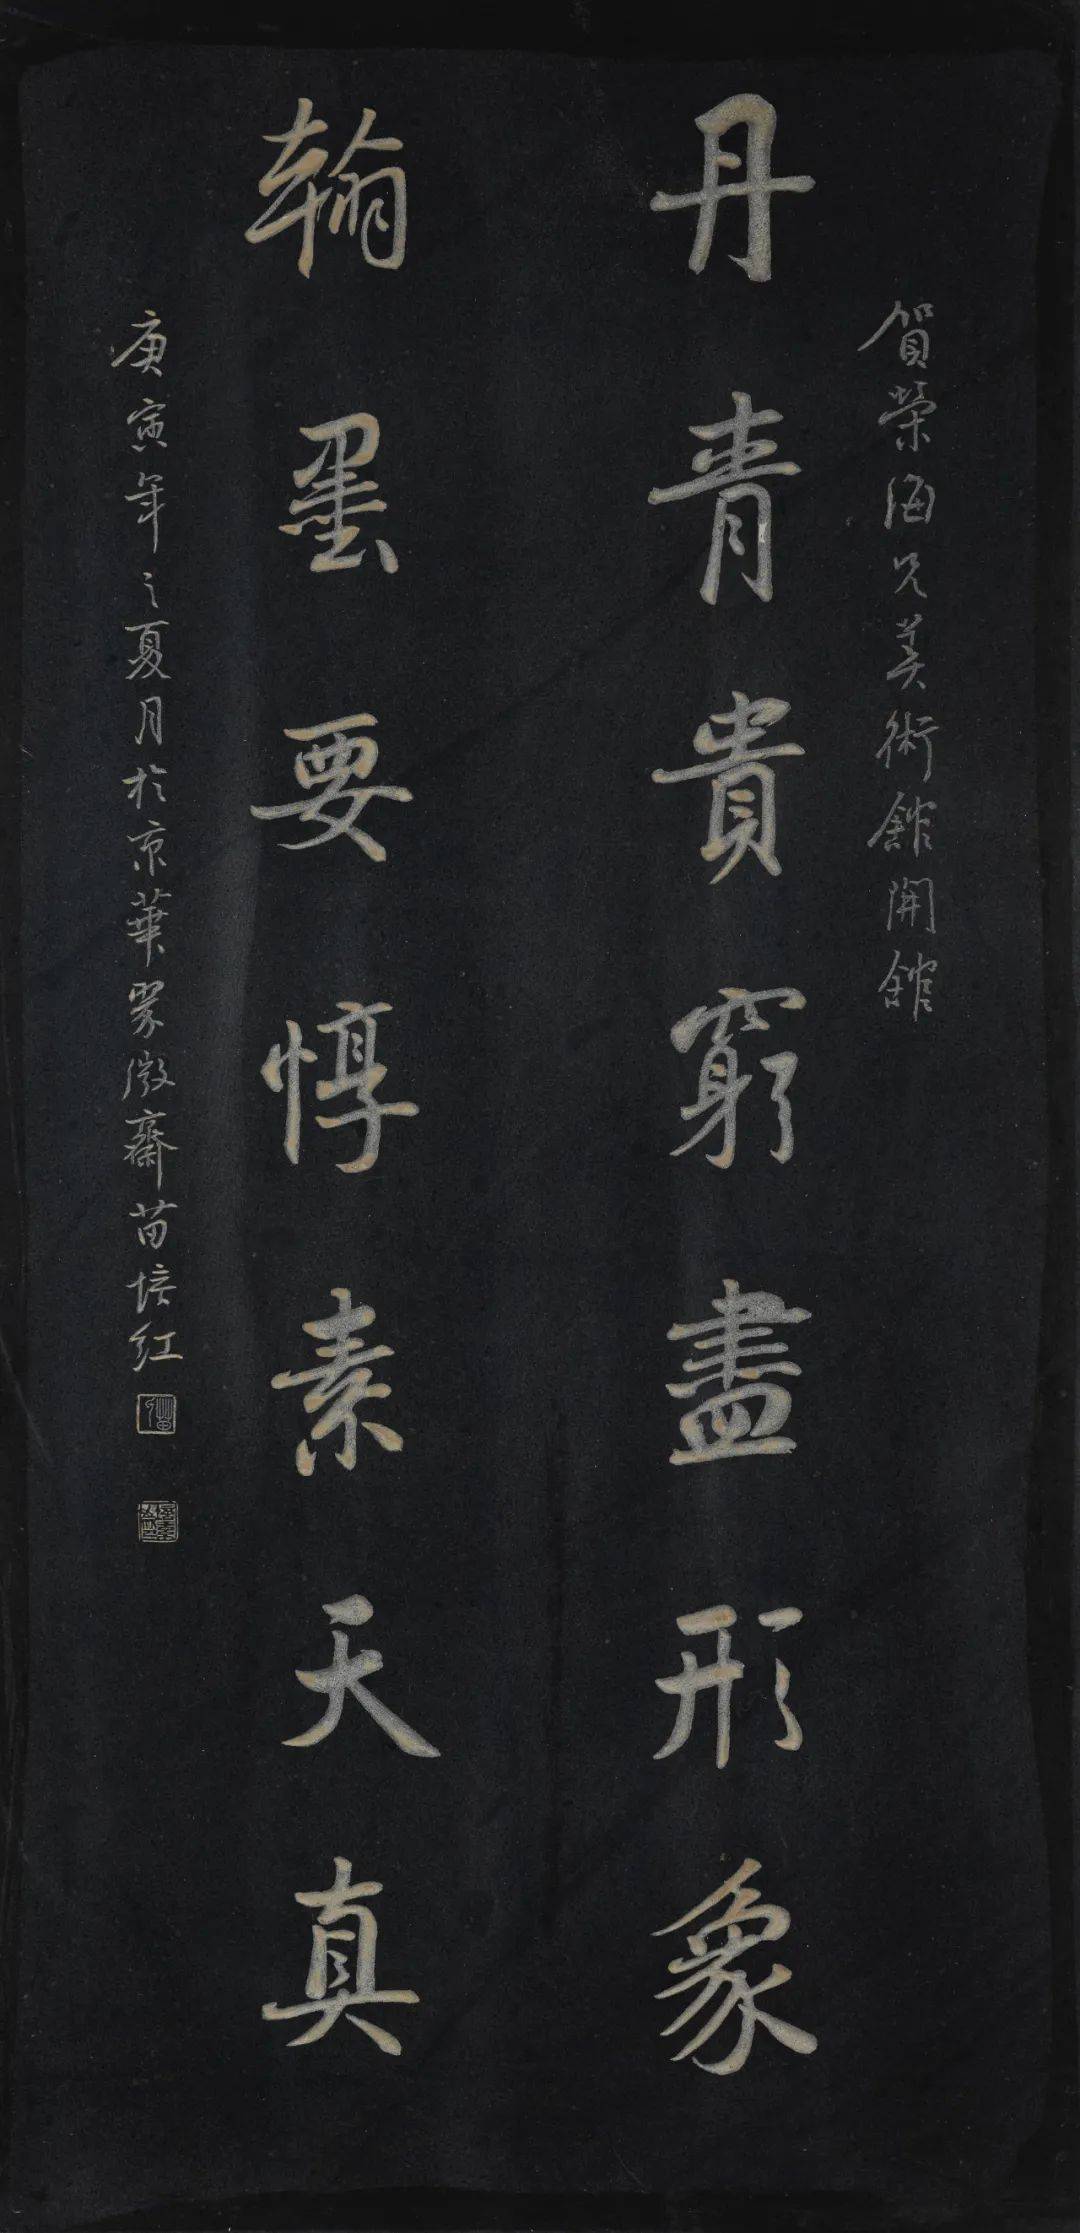 賀榮海兄美術館開館
丹青貴窮盡形象
翰墨要惇素天真
庚寅年之夏月於京華蒙激齋苗培红